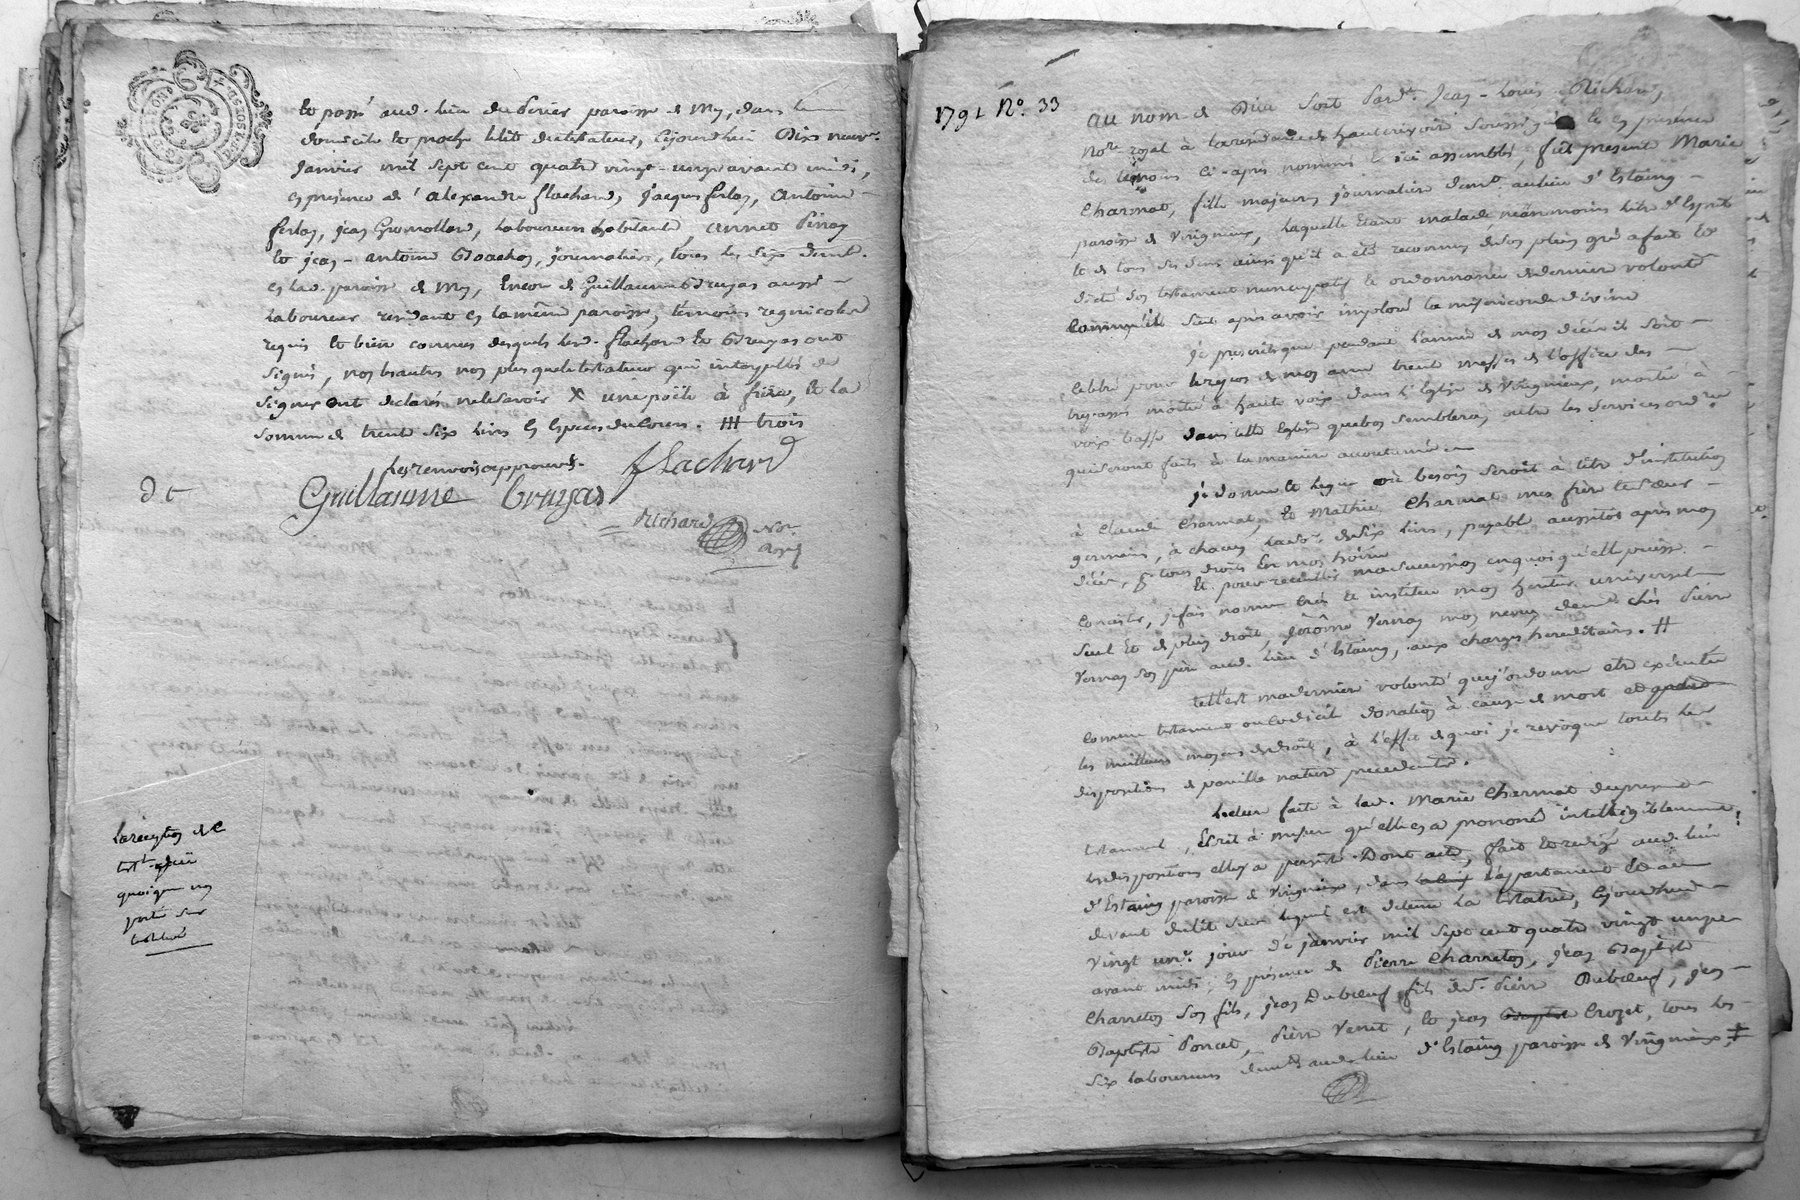 et passé aud. lieu du Perier paroisse de My, dans le
domicile et proche le lit du testateur, cejourd'hui Dix neuv.e
Janvier mil sept cent quatre vingt-onze avant midi,
en présence de Alexandre flachard, Jacques ferlay, Antoine
ferlay, jean Gromollard, laboureurs habitants, annet Piray
et jean-antoine, journaliers, tous les six dem.t
en lad. paroisse de My, Encor de Guillaume Bruyas aussi
laboureur residant en la même paroisse, témoins regnicoles
requis et bien connus desquels led. flachard et Bruyas ont
signés, non les autres non plus que le testateur qui interpellés de
signer ont declarés ne le savoir X une poële à frire, et la
somme de trente six livres en Especes du Cours. ## trois
les renvois approuvés. flachard
Guillaume bruyas
Richard Not. Royal
la reception de ce
quoique non
porté sur
1791 N.o 33
au nom de Dieu soit Pard.t Jean-Louis Richard,
No.re royal à la residence de soussigné et en présence
des témoins ci-après nommés et ici assemblés, fut present Marie
Charmat, fille majeure journaliere dem.t au lieu d'Estaing
paroisse de Virignieux, laquelle Etant malade néanmoins libre d'Esprit
et de tous ses sens ainsi qu'il a été reconnu, de son plein gré a fait et
dicté son testament nuncupatif et ordonnance de derniere volonté
comme il suit après avoir imploré la misericorde divine
Je prescris que pendant l'année de mon décès il soit
celebré pour le repos de mon ame trente messes de l'office des
trepassés moitié à haute voix dans l'Eglise de Virignieux, moitié à
voix basse dans telle Eglise que bon semblera, outre les services ord.res
qui seront faits à la maniere accoutumée
je donne et legue où besoin seroit à titre d'institution
à Claude Charmat, et Mathie Charmat mes frère et sœur
germains, à chacun la so.e de Six livres, payable aussitôt après mon
décès, p.r tous droits En mon hoirie
Et pour recueillir ma succession en quoi qu'elle puisse
consister, je fais nomme crée et institue mon heritier universel
seul et de plein droit, Jérôme Vernay mon neveu dem.t chès Pierre
Vernay son père aud. lieu d'Estaing, aux charges hereditaires. #
telle est ma derniere volonté que j'ordonne etre exécutée
comme testament ou codicile donation à cause de mort et
les meilleurs moyens de droits, à l'effet de quoi je revoque toutes les
dispositions de pareille nature precedentes.
Lecture faite à lad. Marie Charmat du present
testament, Ecrit à mesure qu'elle en a prononcé intelligiblement
les dispositions elle y a persisté. Dont acte, fait et redigé aud. lieu
d'Estaing paroisse de Virignieux, dans l'appartement et au
devant du lit sur lequel est detenue la testatrice, cejourd'hui
vingt un.e jour de janvier mil sept cent quatre vingt onze
avant midi; en présence de Pierre Charreton, jean Baptiste
Charreton son fils, jean Dubœuf fils de d.t Pierre Dubœuf, jean
Baptiste Poncet, Pierre Verret, et jean Baptiste Crozet, tous les
six laboureurs dem.ts aud. lieu d'Estaing paroisse de Virignieux, #